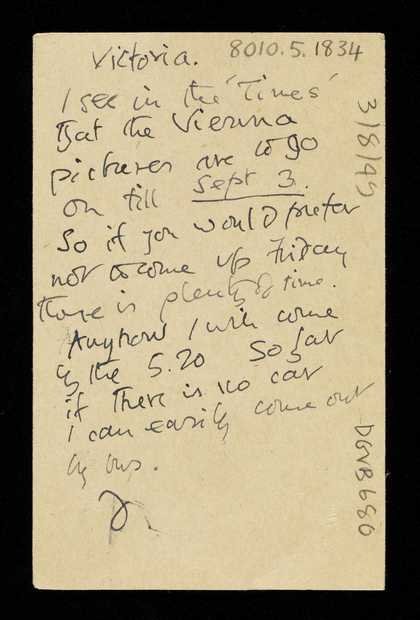 Victoria. 8010.5.1834
I see in the 'Times'
that the Vienna
pictures are to go
on till Sept 3.
So if you would prefer
not to come up Friday
there is plenty of time.
Anyhow I will come
by the 5.20 So far
if there is no car
I can easily come out
by bus.
D
3/8/49